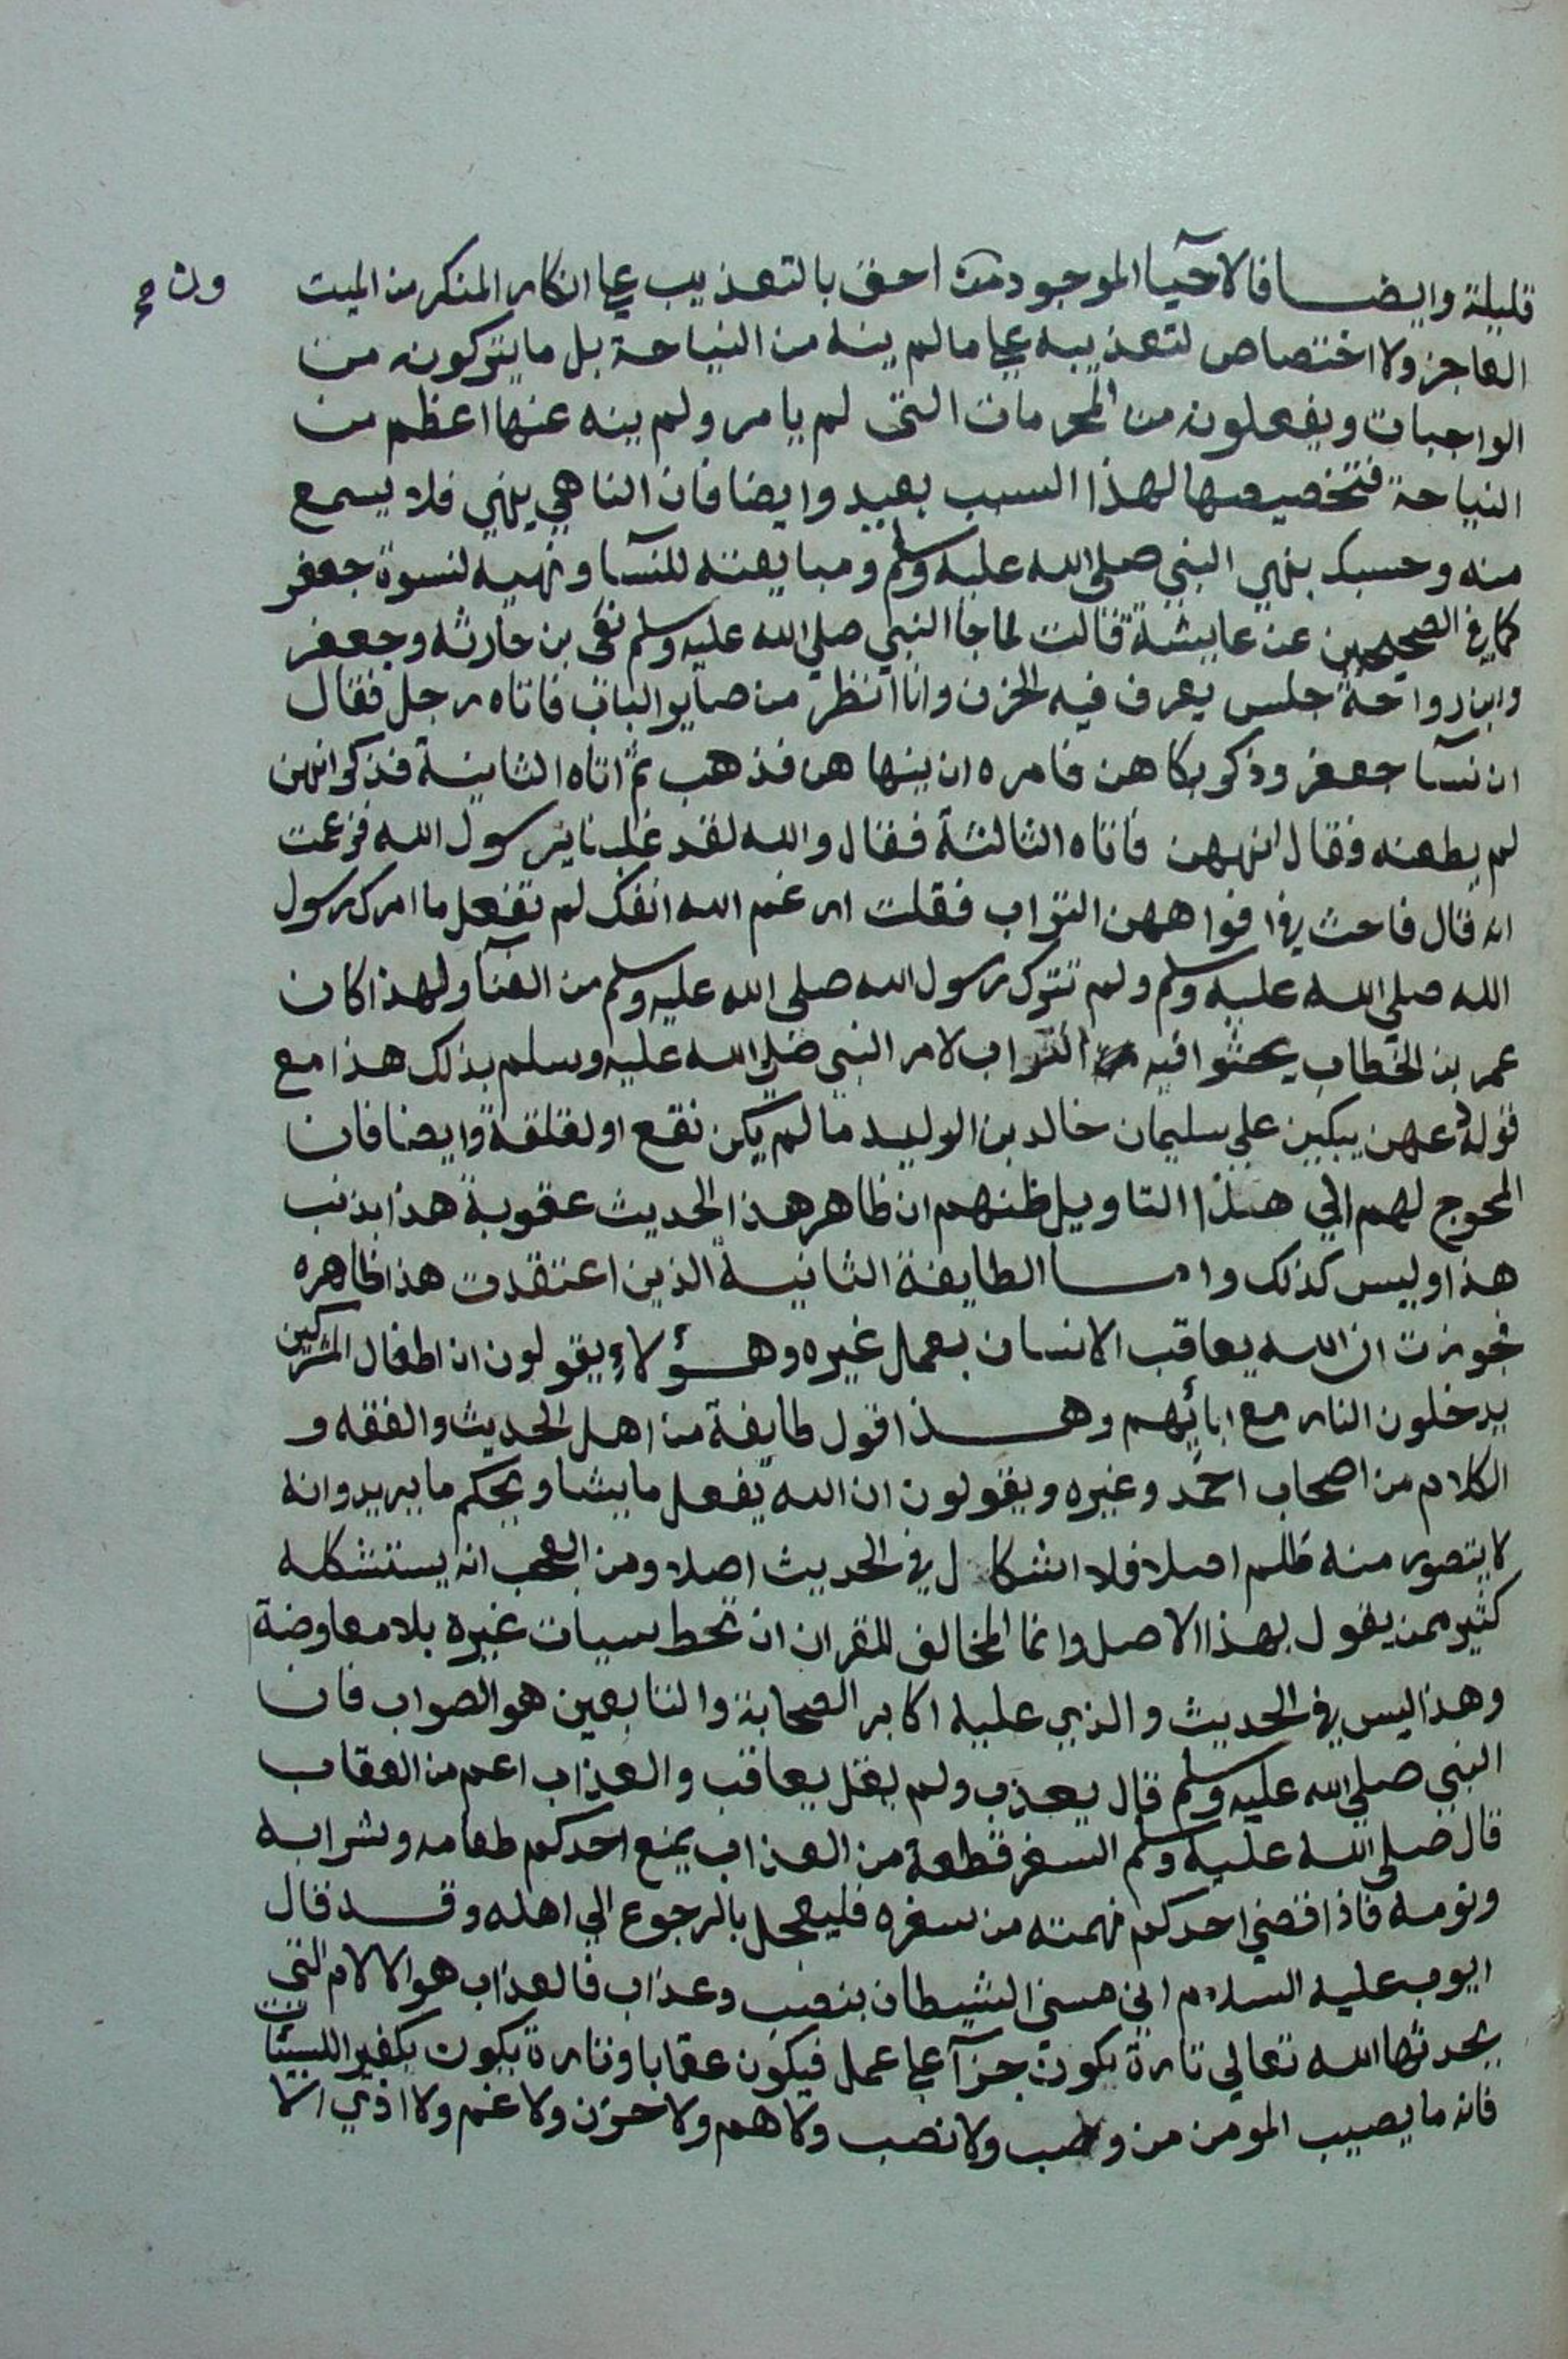 قليلة وايضا فالاحيا الموجودون احق بالتعذيب علي انكار المنكر من الميت
ون صح
العاجز ولا اختصاص لتعذيبه علي ما لم ينه من النياحة بل ما يتركونه من
الواجبات ويفعلون من المحرمات التي لم يامر ولم ينه عنها اعظم من
النياحة فتخصيصها لهذا السبب بعيد وايضا فان الناهي ينهي فلا يسمع
منه وحسبك بنهي النبي صلي الله عليه وسلم ومبايعته للنسآ ونهيه لنسوة جعفر
كما في الصحيحين عن عايشة قالت لما جا النبي صلي الله عليه وسلم نعي بن حارثه وجعفر
وابن رواحة جلس يعرف فيه الحزن وانا انظر من صاير الباب فاتاه رجل فقال
ان نسآ جعفر وذكر بكاهن فامره ان ينهاهن فذهب ثم اتاه الثانية فذكر انهن
لم يطعنه فقال انههن فاتاه الثالثة فقال والله لقد غلبننا يرسول الله فزعمت
انه قال فاحث في افواههن التراب فقلت ارغم الله انفك لم تفعل ما امرك رسول
الله صلي الله عليه وسلم ولم تترك رسول الله صلي الله عليه وسلم من العنآ ولهذا كان
عمر بن الخطاب يحثوا فيه التراب لامر النبي صلي الله عليه وسلم بذلك هذا مع
قوله دعهن يبكين علي سليمان خالد بن الوليد ما لم يكن نقع او لقلقة وايضا فان
المحوج لهم الي هذا التاويل ظنهم ان ظاهر هذا الحديث عقوبة هذا بذنب
هذا وليس كذلك واما الطايفة الثانية الذين اعتقدت هذا ظاهره
فجوزت ان الله يعاقب الانسان بعمل غيره وهؤلاء يقولون ان اطفال المشركين
يدخلون النار مع ابائهم وهذا قول طايفة من اهل الحديث والفقه و
الكلام من اصحاب احمد وغيره ويقولون ان الله يفعل ما يشا ويحكم ما يريد وانه
لا يتصور منه ظلم اصلا فلا اشكال في الحديث اصلا ومن العجب انه يستشكله
كثير ممن يقول بهذا الاصل وانما المخالف للقران ان تحط سيات غيره بلا معاوضة
وهذا ليس في الحديث والذي عليه اكابر الصحابة والتابعين هو الصواب فان
النبي صلي الله عليه وسلم قال يعذب ولم يقل يعاقب والعذاب اعم من العقاب
قال صلي الله عليه وسلم السفر قطعة من العذاب يمنع احدكم طعامه وشرابه
ونومه فاذا قضي احدكم نهمته من سفره فليعجل بالرجوع الي اهله وقد قال
ايوب عليه السلام اني مسني الشيطان بنصب وعذاب فالعذاب هو الالام التي
يحدثها الله تعالي تارة يكون جزآ علي عمل فيكون عقابا وتارة يكون تكفير السيئات
فانه ما يصيب المومن من وصب ولا نصب ولا هم ولا حزن ولا غم ولا اذي الا